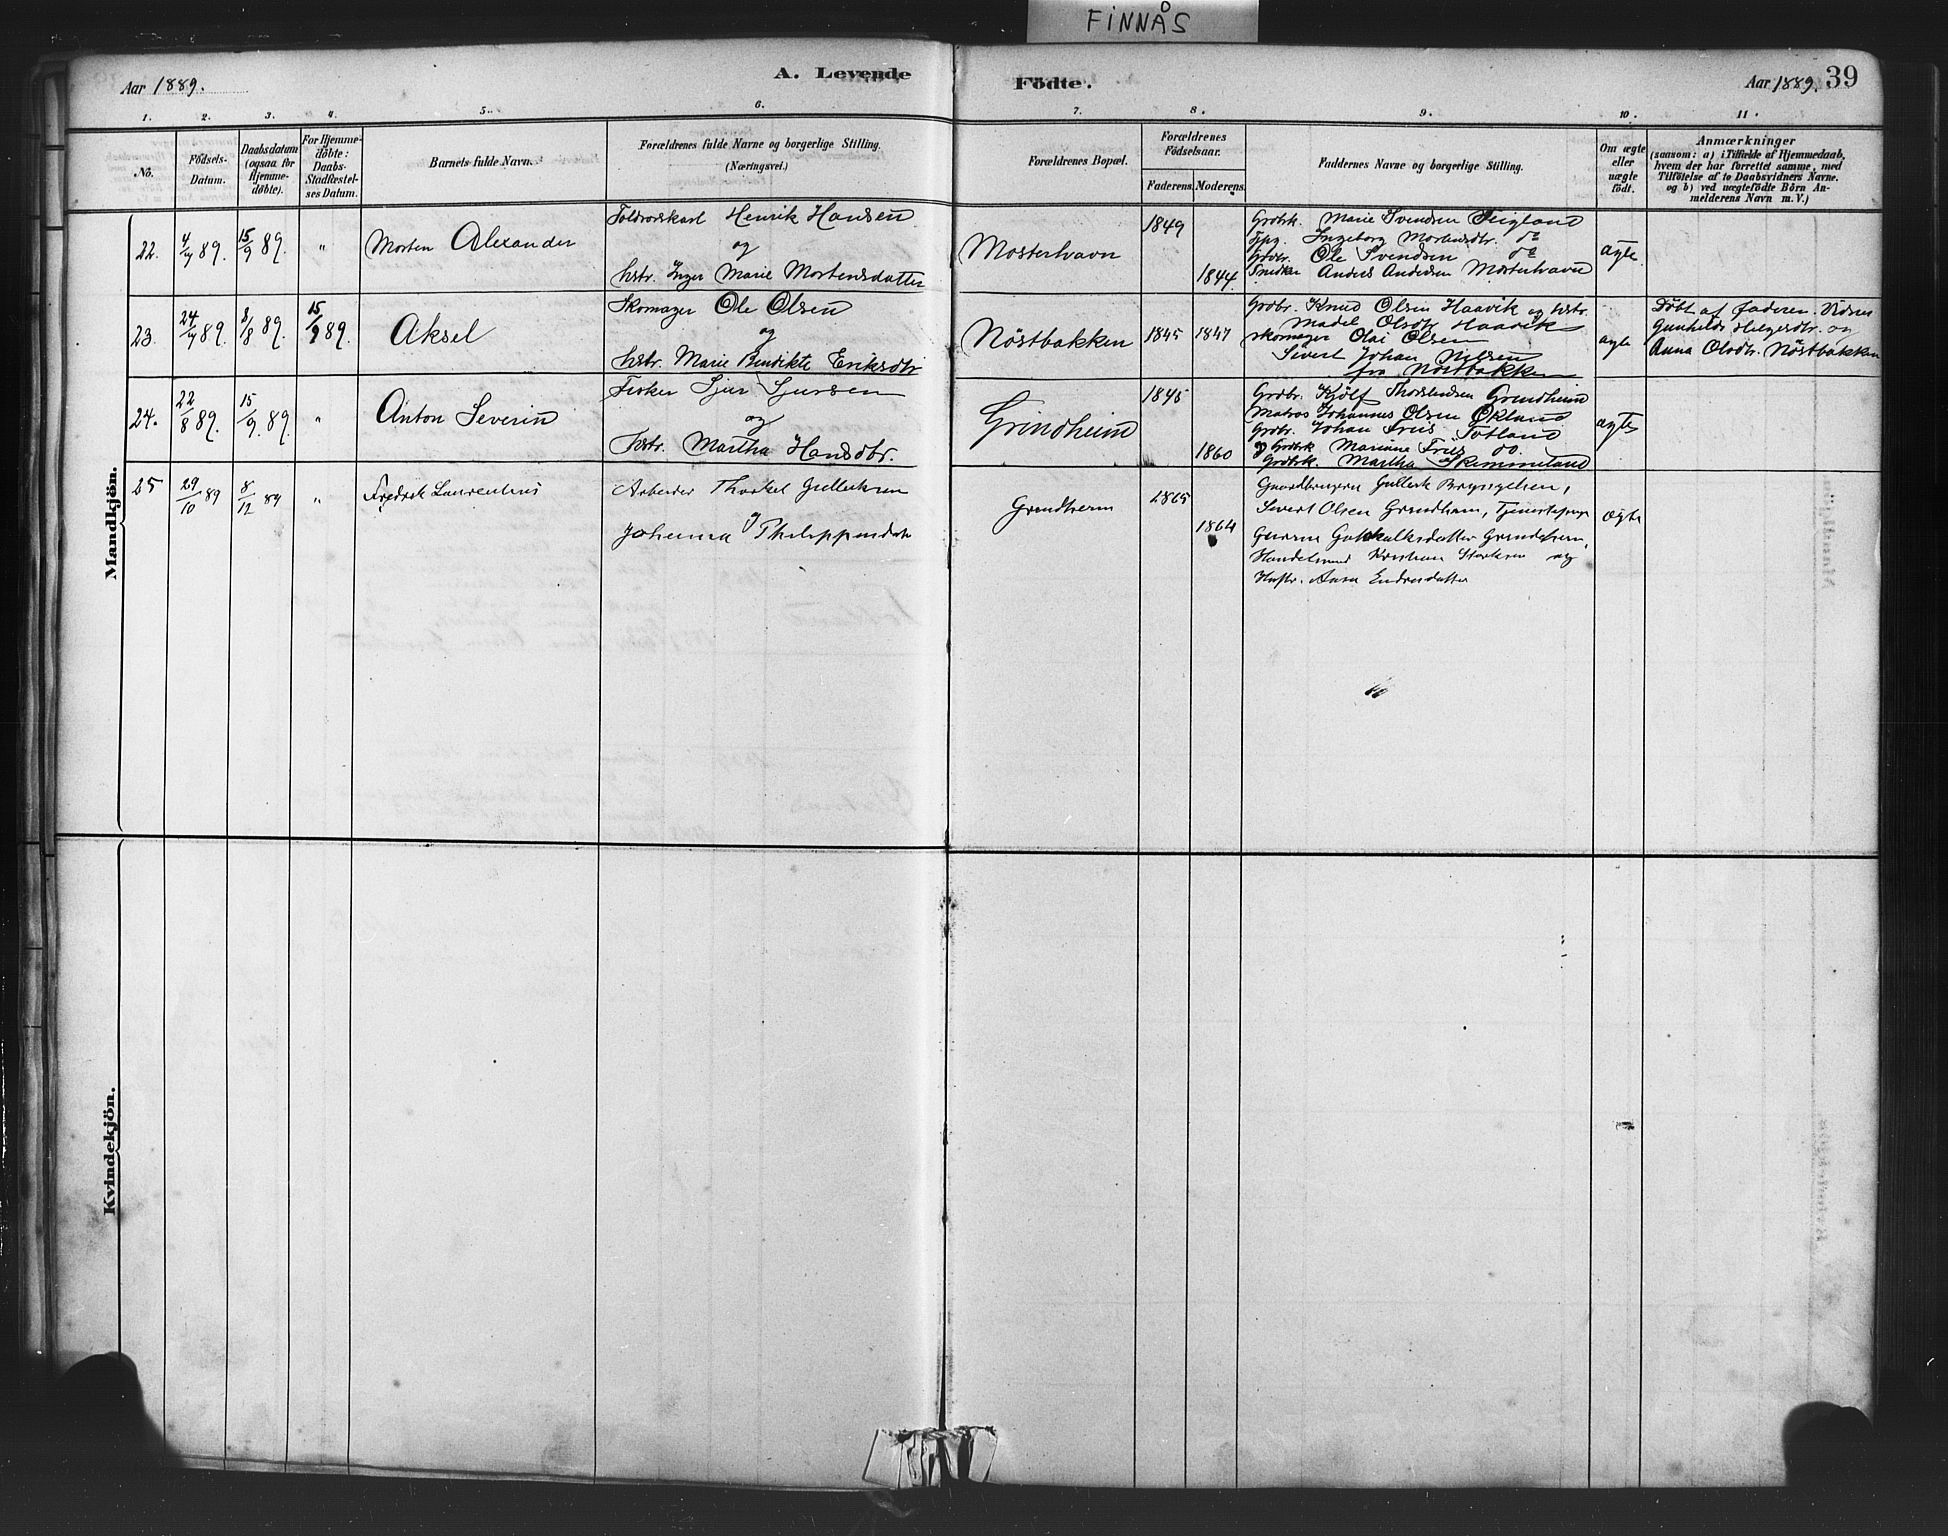 FINNÅS
Aar 1889.
A. Levende Födte.
Aar 1889. 39
1. 2. 3. 4. 5. 6. 7. 8. 9. 10. 11.
No.
Födsels-
Datum.
Daabsdatum
(ogsaa för
Hjemme-
döbte).
For Hjemme-
döbte:
Daabs-
Stadfæstel-
ses Datum.
Barnets fulde Navn.
Forældrenes fulde Navne og borgerlige Stilling.
(Næringsvei.)
Forældrenes Bopæl.
Forældrenes
Födselsaar.
Faderens. Moderens.
Faddernes Navne og borgerlige Stilling.
Om ægte
eller
uægte
födt.
Anmærkninger
(saasom: a) i Tilfælde af Hjemmedaab,
hvem der har forrettet samme, med
Tilföielse af to Daabsvidners Navne.
og b) ved uægtefödte Börn An-
melderens Navn m. V.)
Mandkjön.
22. 4/4 89. 15/9 89. "
Morten Alexander
Henrik Hansen
og
hstr. Inger Marie Mortensdatter
Mosterhavn
1849
1844
Grdbr. Marie Svendsen
Ingeborg Mortensdtr. do
Grdbr. Ole Svendsen do
Snidker Anders Andersen Mosterhavn
ægte
23. 24/4 89. 8/8 89. 15/9 89.
Aksel
Skomager Ole Olsen
og
hstr. Marie Bendikte Eriksdtr
Nöstbakken
1845 1847
Grdbr. Knud Olsen Haavik og hstr.
Madel Olsdtr Haavik
skomager Olai Olsen
Sivert Johan Nielsen
fra Nöstbakken
ægte
Döbt af faderen. Vidner
Gunhilde Helgesdtr. og
Anna Olsdtr. Nöstbakken
24. 22/8 89. 15/9. 89. "
Anton Severin
Fisker Sjur Sjursen
og
hstr. Martha Hansdtr.
Grindheim
1845
1860
Grdbr. Kjölf Thorstensen Grindheim
Matros Johannes Olsen Ökland
Grdbr. Johan Friis Totland
og Grdbrk Mariane Friis do.
Grdbrk. Martha Skimmeland
ægte
25 29/10 89 8/12 89 "
Fredrik Laurentius
Arbeider Thorkel Gulleiksen
Johanna Philippusdatter
Grindheim
1865
1864
Gaardbrugerne Gulleik Bryngelsen,
Sivert Olsen Grindheim, Tjenestepige
Handelsmand Kristian
Hustr. Anna Endresdatter
ægte
Kvindekjön.